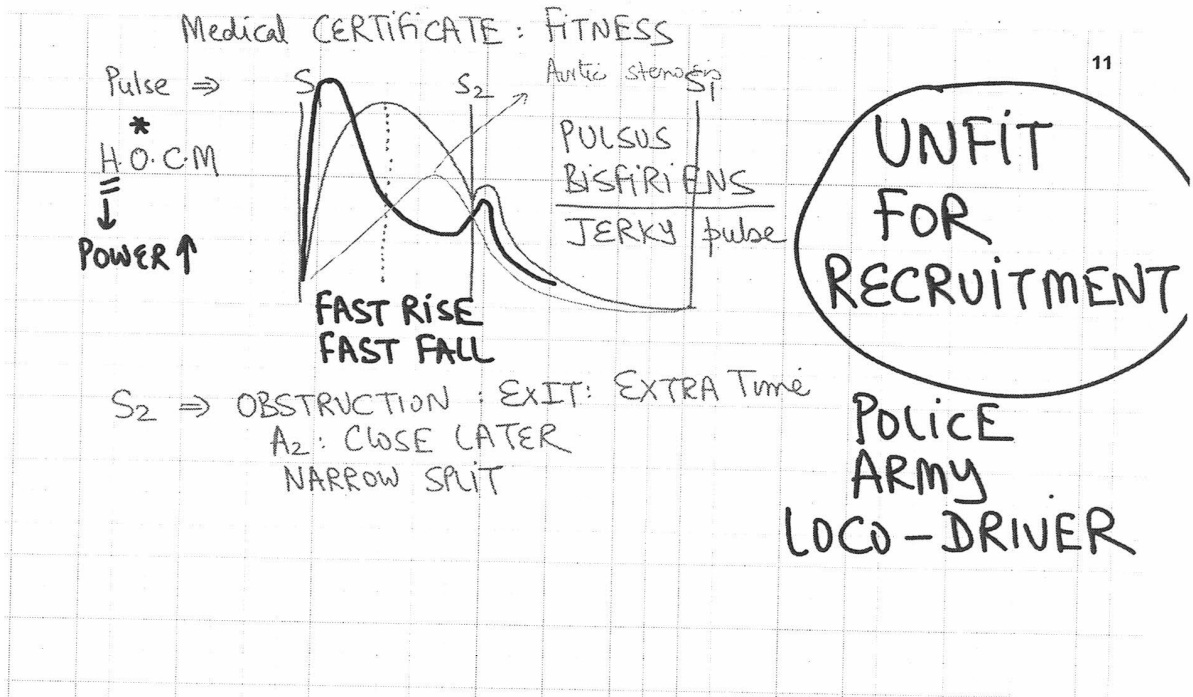 Medical CERTIFICATE : FITNESS
11
Pulse ⇒
S₁
S₂
Aortic stenosis
S₁
*
H.O.C.M
↓
POWER ↑
PULSUS
BISFIRIENS
JERKY pulse
FAST RISE
FAST FALL
UNFIT
FOR
RECRUITMENT
S₂ ⇒ OBSTRUCTION : EXIT: EXTRA Time
A₂ : CLOSE LATER
NARROW SPLIT
POLICE
ARMY
LOCO - DRIVER